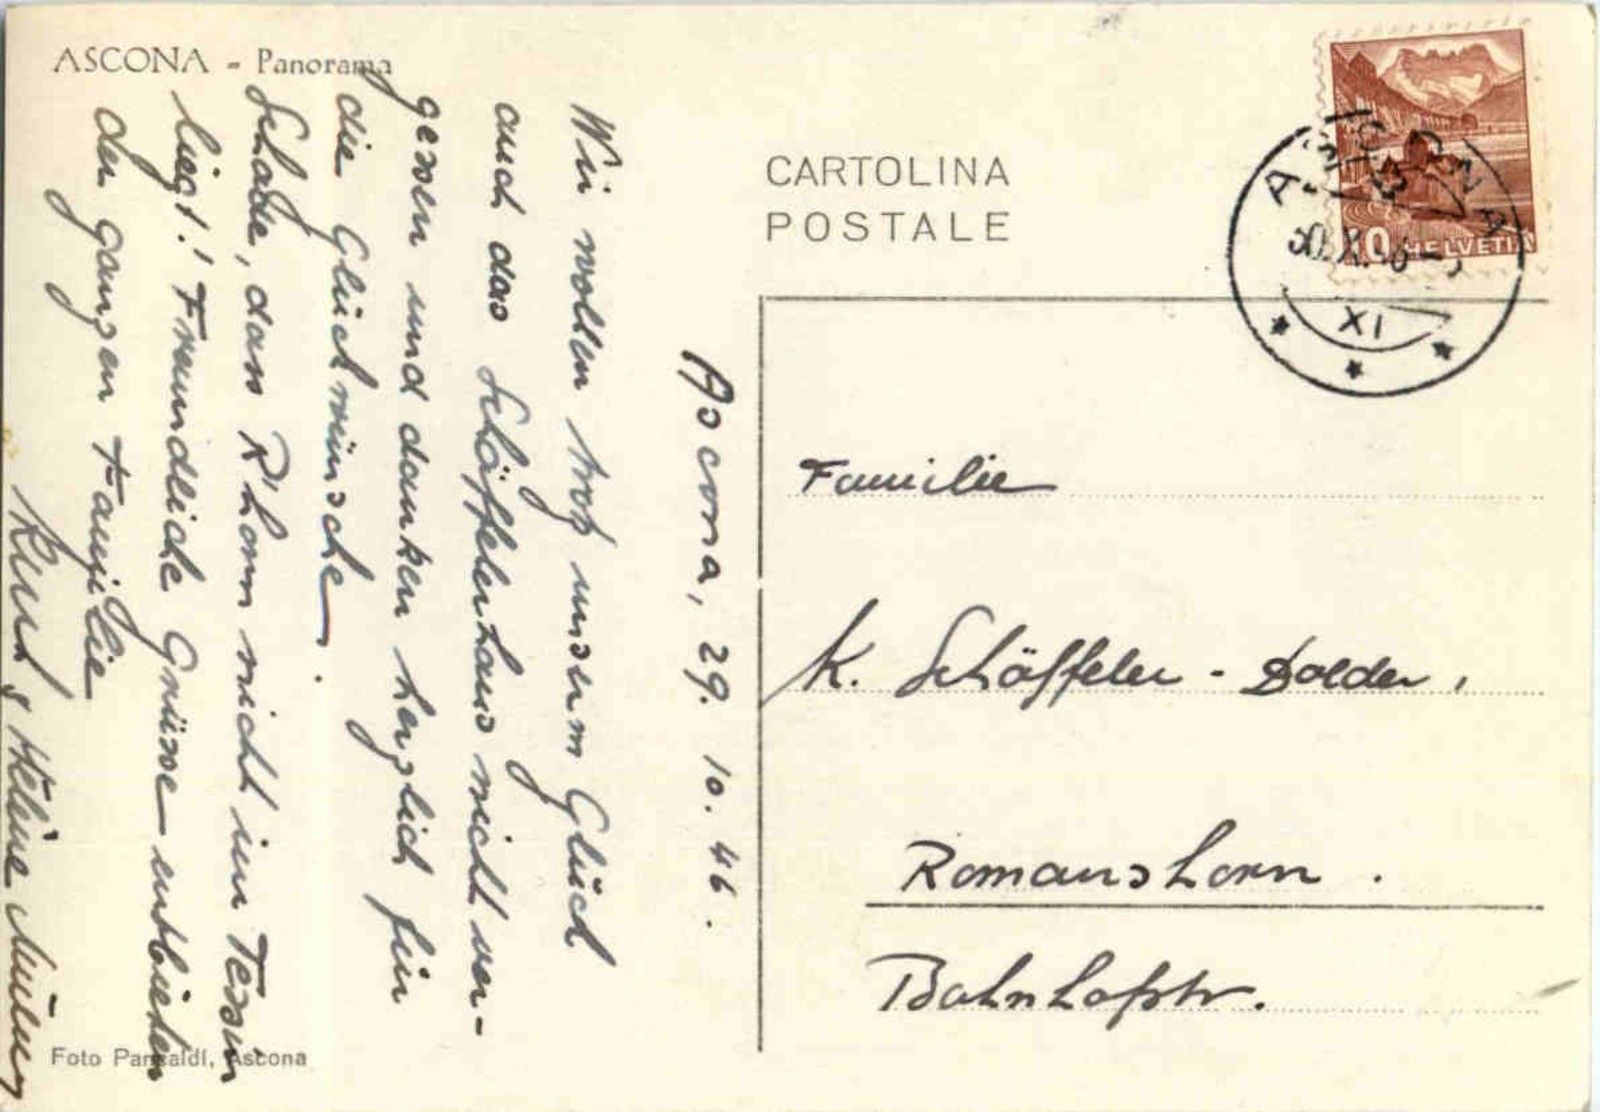 ASCONA - Panorama
CARTOLINA
POSTALE
HELVETIA
ASCONA
XI
Ascona, 29. 10. 46.
Wir wollen trotz unserm Glück
auch das Schäffelerhaus nicht ver-
gessen und danken herzlich für
die Glückwünsche.
Schade, dass R'horn nicht im Tessin
liegt! Freundliche Grüsse entbieten
der ganzen Familie
& Helene
Familie
K. Schäffeler - Dolder,
Romanshorn.
Bahnhofstr.
Foto Pancaldi, Ascona